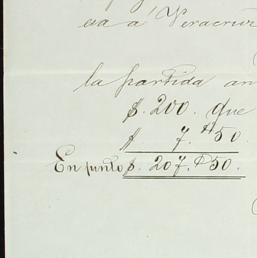 esa á Veracruz
la partida an
$. 200. que
$ 7. $50.
En junto $. 207. $50.